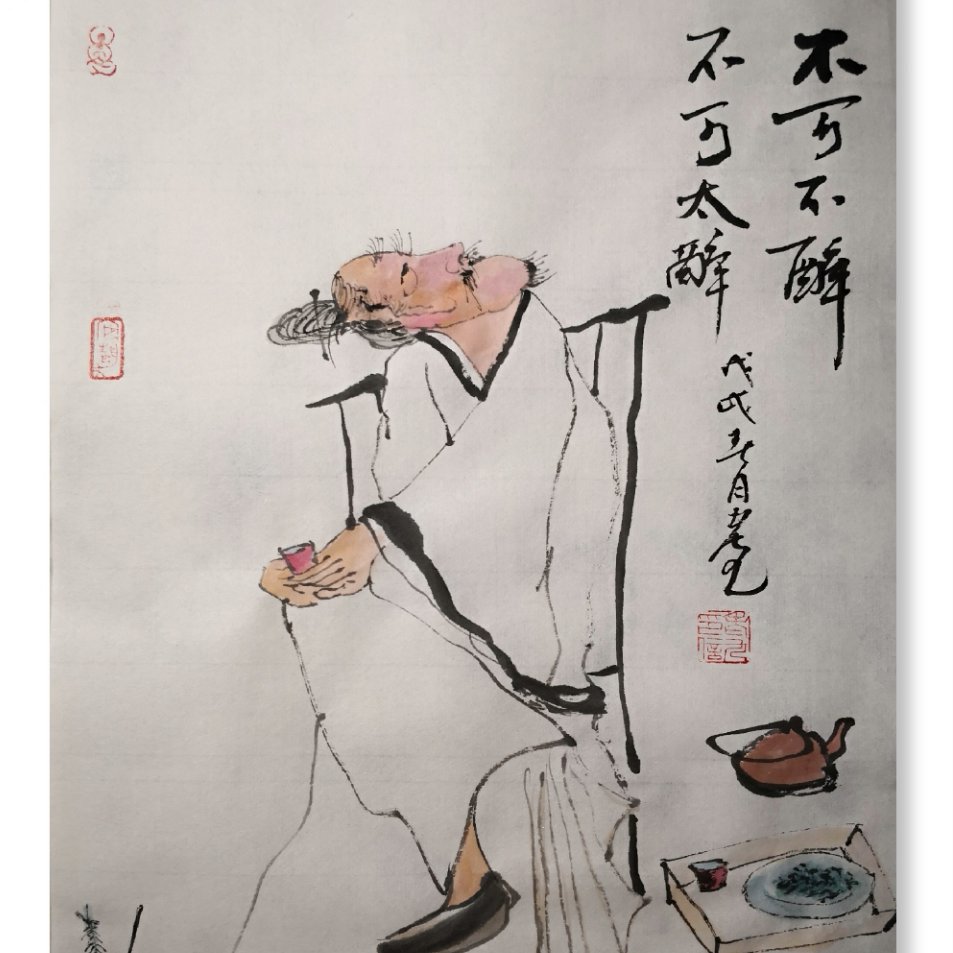 不可不醉
不可太醉
戊戌春月